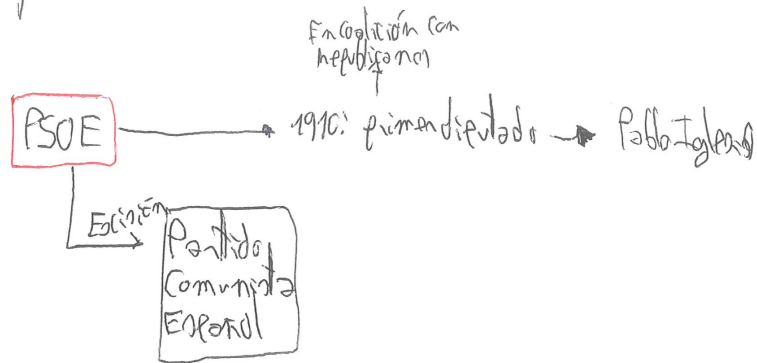 En coalición con
republicanos
PSOE
1910: primer diputado
Pablo Iglesias
Escisión
Partido
Comunista
Español